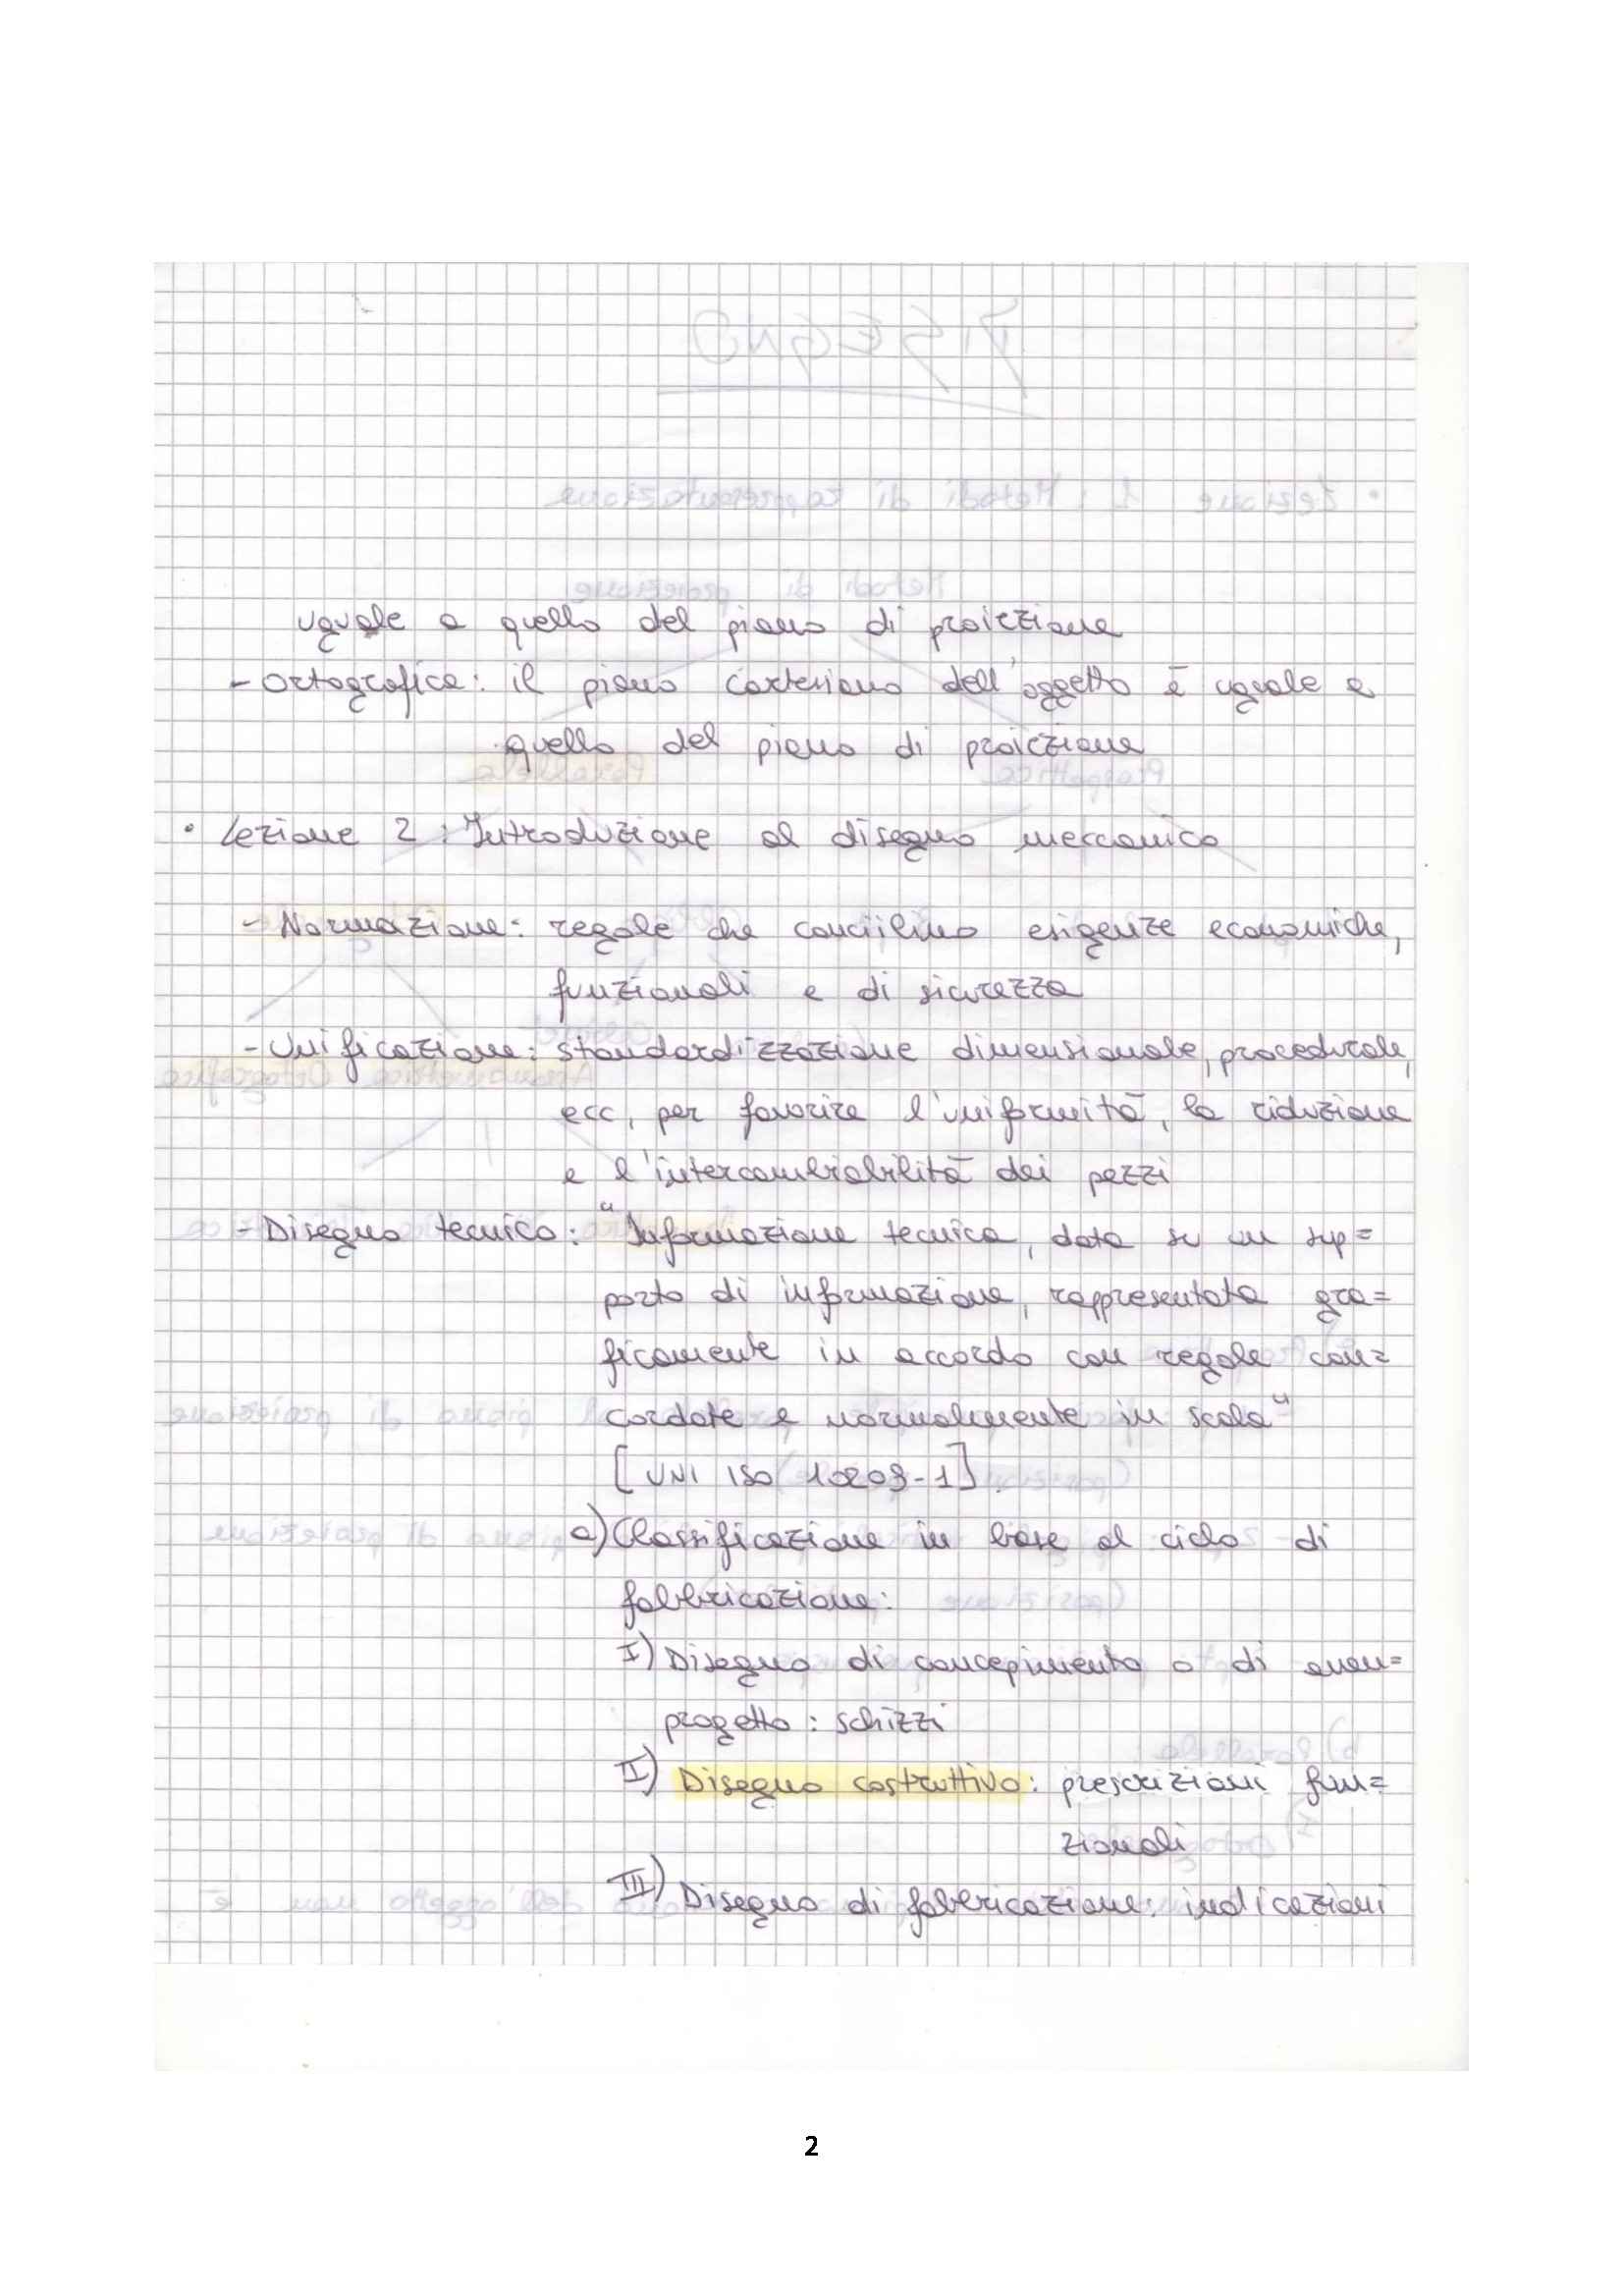 uguale a quello del piano di proiezione
- Ortografica: il piano cartesiano dell'oggetto è uguale a
quello del piano di proiezione
• Lezione 2: Introduzione al disegno meccanico
- Normazione: regole che conciilino esigenze economiche,
funzionali e di sicurezza
- Unificazione: standardizzazione dimensionale, procedurale,
ecc, per favorire l'uniformità, la riduzione
e l'intercambiabilità dei pezzi
- Disegno tecnico: "Informazione tecnica, data su un sup=
porto di informazione, rappresentata gra=
ficamente in accordo con regole con=
cordate e normalmente in scala"
[UNI ISO 10209-1]
a) Classificazione in base al ciclo di
fabbricazione:
I) Disegno di concepimento o di avan=
progetto: schizzi
II) Disegno costruttivo: prescrizioni fun=
zionali
III) Disegno di fabbricazione: indicazioni
2